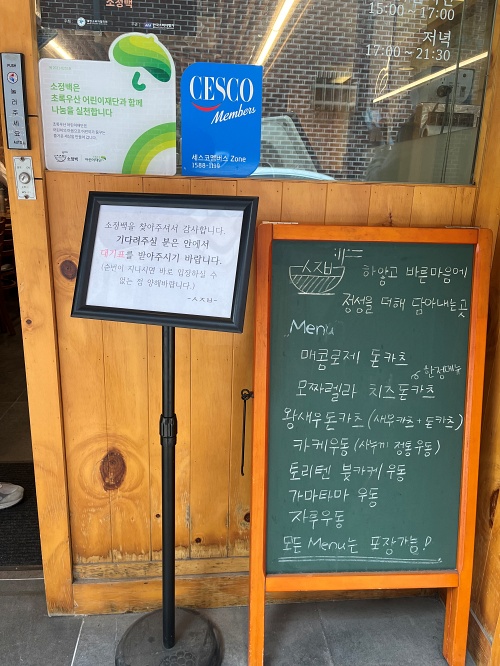 소정백
15:00~17:00
저녁
17:00~21:30
소정백은
초록우산 어린이재단과 함께
나눔을 실천합니다
CESCO
Members
세스코멤버스 Zone
1588-1119
소정백을 찾아주셔서 감사합니다.
기다려주실 분은 안에서
대기표를 받아주시기 바랍니다.
(순번이 지나치면 바로 입장하실 수
없는 점 양해바랍니다.)
-ㅅㅈㅂ-
ㅅㅈㅂ
하얗고 바른마음에
정성을 더해 담아내는곳
Menu
매콤로제 돈카츠
한정메뉴
모짜렐라 치즈돈카츠
왕새우돈카츠 (새우카츠+돈카츠)
카케우동 (사누끼 정통우동)
토리텐 붓카케 우동
가마타마 우동
자루우동
모든 Menu는 포장가능!